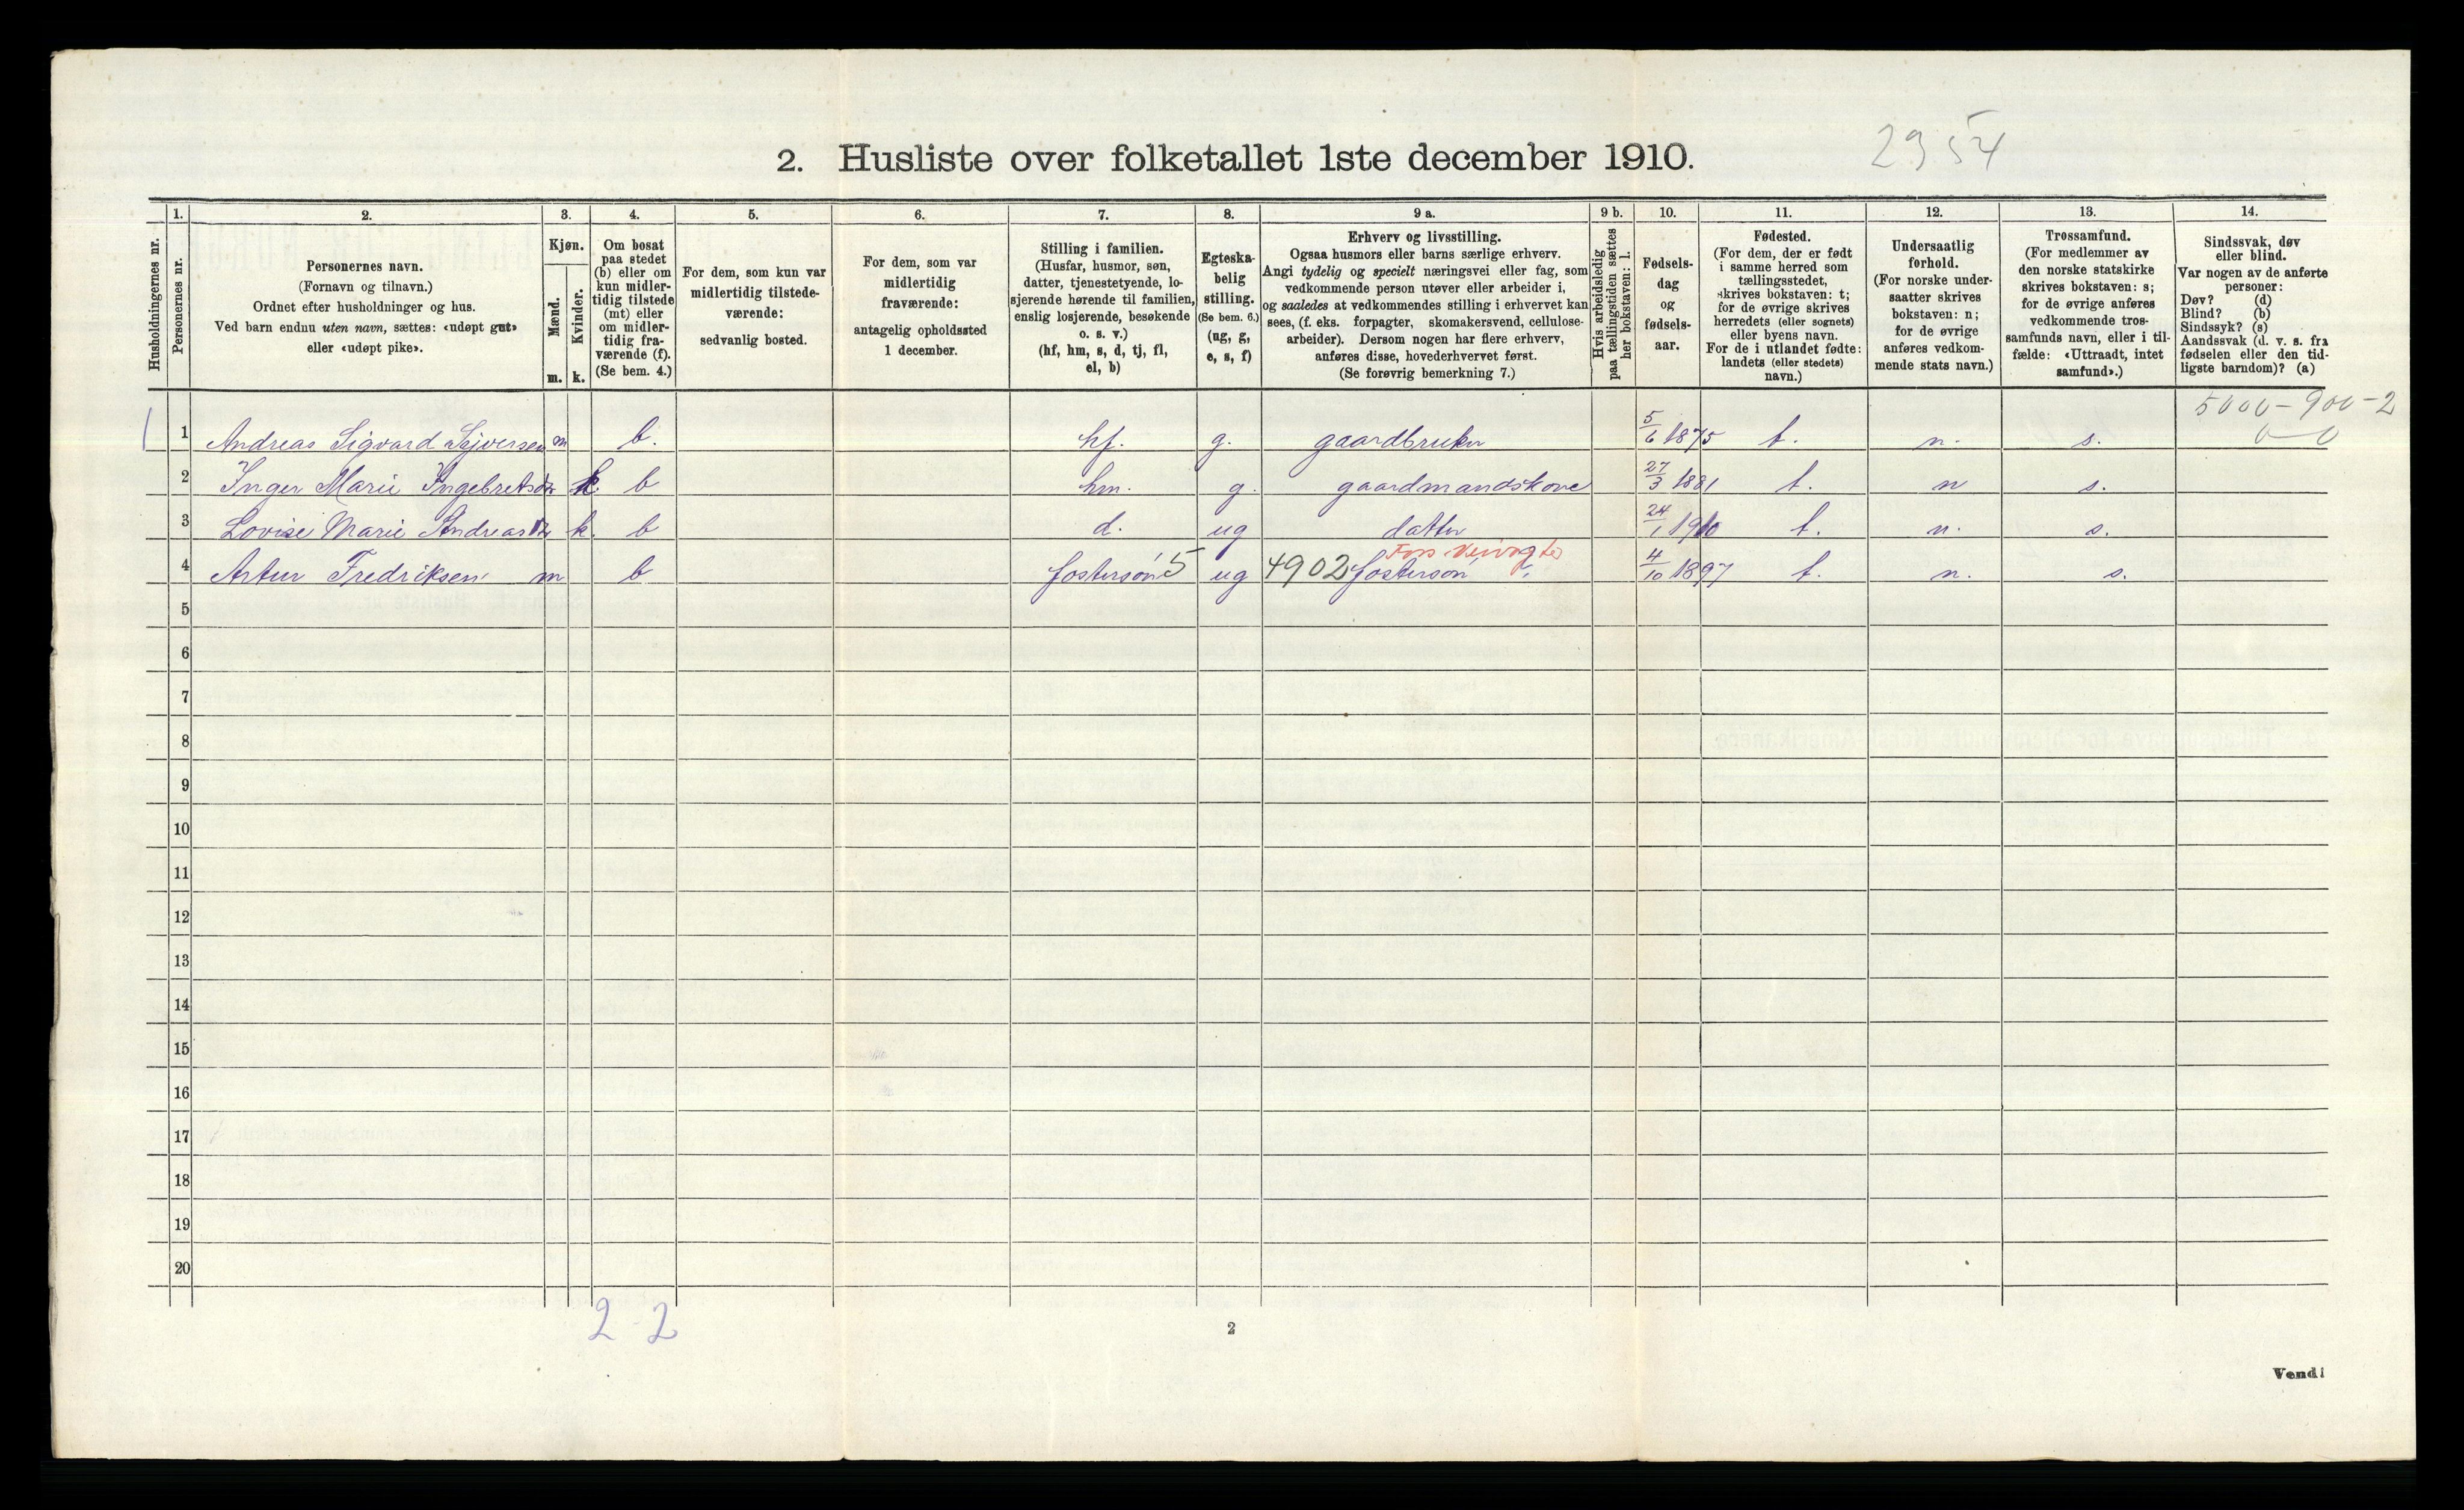 2. Husliste over folketallet 1ste december 1910.
2954
Husholdningernes nr.
1.
Personernes nr.
2.
Personernes navn.
(Fornavn og tilnavn.)
Ordnet efter husholdninger og hus.
Ved barn endnu uten navn, sættes: «udøpt gut»
eller «udøpt pike».
3.
Kjøn.
Mænd.
Kvinder.
m. k.
4.
Om bosat
paa stedet
(b) eller om
kun midler-
tidig tilstede
(mt) eller
om midler-
tidig fra-
værende (f).
(Se bem. 4.)
5.
For dem, som kun var
midlertidig tilstede-
værende:
sedvanlig bosted.
6.
For dem, som var
midlertidig
fraværende:
antagelig opholdssted
1 december.
7.
Stilling i familien.
(Husfar, husmor, søn,
datter, tjenestetyende, lo-
sjerende hørende til familien,
enslig losjerende, besøkende
o. s. v.)
(hf, hm, s, d, tj, fl,
el, b)
8.
Egteska-
belig
stilling.
(Se bem. 6.)
(ug, g,
e, s, f)
9 a.
Erhverv og livsstilling.
Ogsaa husmors eller barns særlige erhverv.
Angi tydelig og specielt næringsvei eller fag, som
vedkommende person utøver eller arbeider i,
og saaledes at vedkommendes stilling i erhvervet kan
sees, (f. eks. forpagter, skomakersvend, cellulose-
arbeider). Dersom nogen har flere erhverv,
anføres disse, hovederhvervet først.
(Se forøvrig bemerkning 7.)
9 b.
Hvis arbeidsledig
paa tællingstiden sættes
her bokstaven: l.
10.
Fødsels-
dag
og
fødsels-
aar.
11.
Fødested.
(For dem, der er født
i samme herred som
tællingsstedet,
skrives bokstaven: t;
for de øvrige skrives
herredets (eller sognets)
eller byens navn.
For de i utlandet fødte:
landets (eller stedets)
navn.)
12.
Undersaatlig
forhold.
(For norske under-
saatter skrives
bokstaven: n;
for de øvrige
anføres vedkom-
mende stats navn.)
13.
Trossamfund.
(For medlemmer av
den norske statskirke
skrives bokstaven: s;
for de øvrige anføres
vedkommende tros-
samfunds navn, eller i til-
fælde: «Uttraadt, intet
samfund».)
14.
Sindssvak, døv
eller blind.
Var nogen av de anførte
personer:
Døv? (d)
Blind? (b)
Sindssyk? (s)
Aandssvak (d. v. s. fra
fødselen eller den tid-
ligste barndom)? (a)
5000-900-2
0-0
1 1 Andreas Sigvard Sjversen m b. hf. g. gaardbruker 5/6 1875 t. n. s.
2 Inger Marie Ingebretsdtr k. b hm. g. gaardmandskone 27/3 1881 t. n s.
3 Lovise Marie Andreasdtr k. b d. ug datter 24/1 1910 t. n. s.
4 Artur Fredriksen m b fostersøn 5 ug 4902 fostersøn 4/10 1897 t. n. s.
5
6
7
8
9
10
11
12
13
14
15
16
17
18
19
20
2-2
2
Vend!